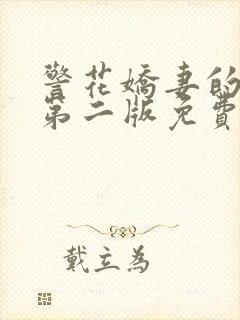 警花嬌妻的
第二版免費
戴立為